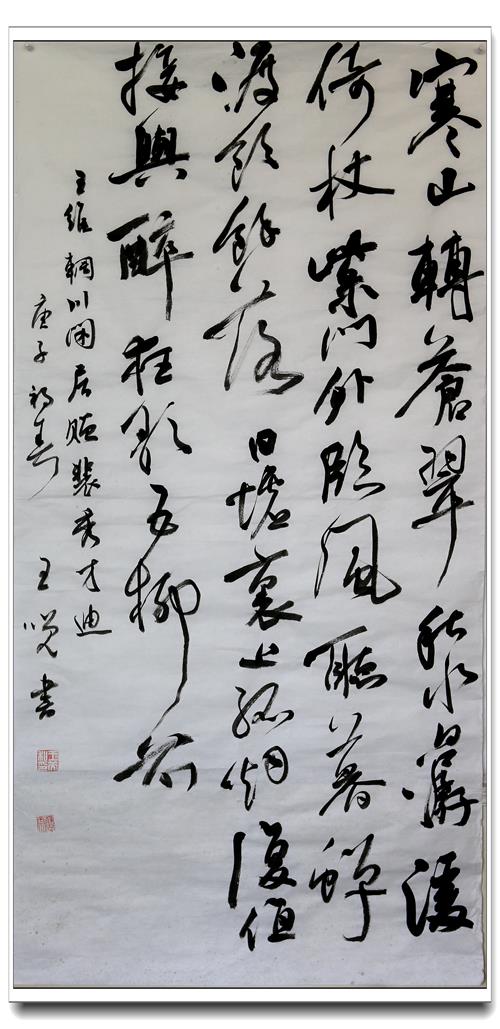 寒山轉蒼翠秋水日潺湲
倚杖柴門外臨風聽暮蟬
渡頭餘落日墟裏上孤烟復值
接輿醉狂歌五柳前
王維輞川閑居贈裴秀才迪
庚子初春王書